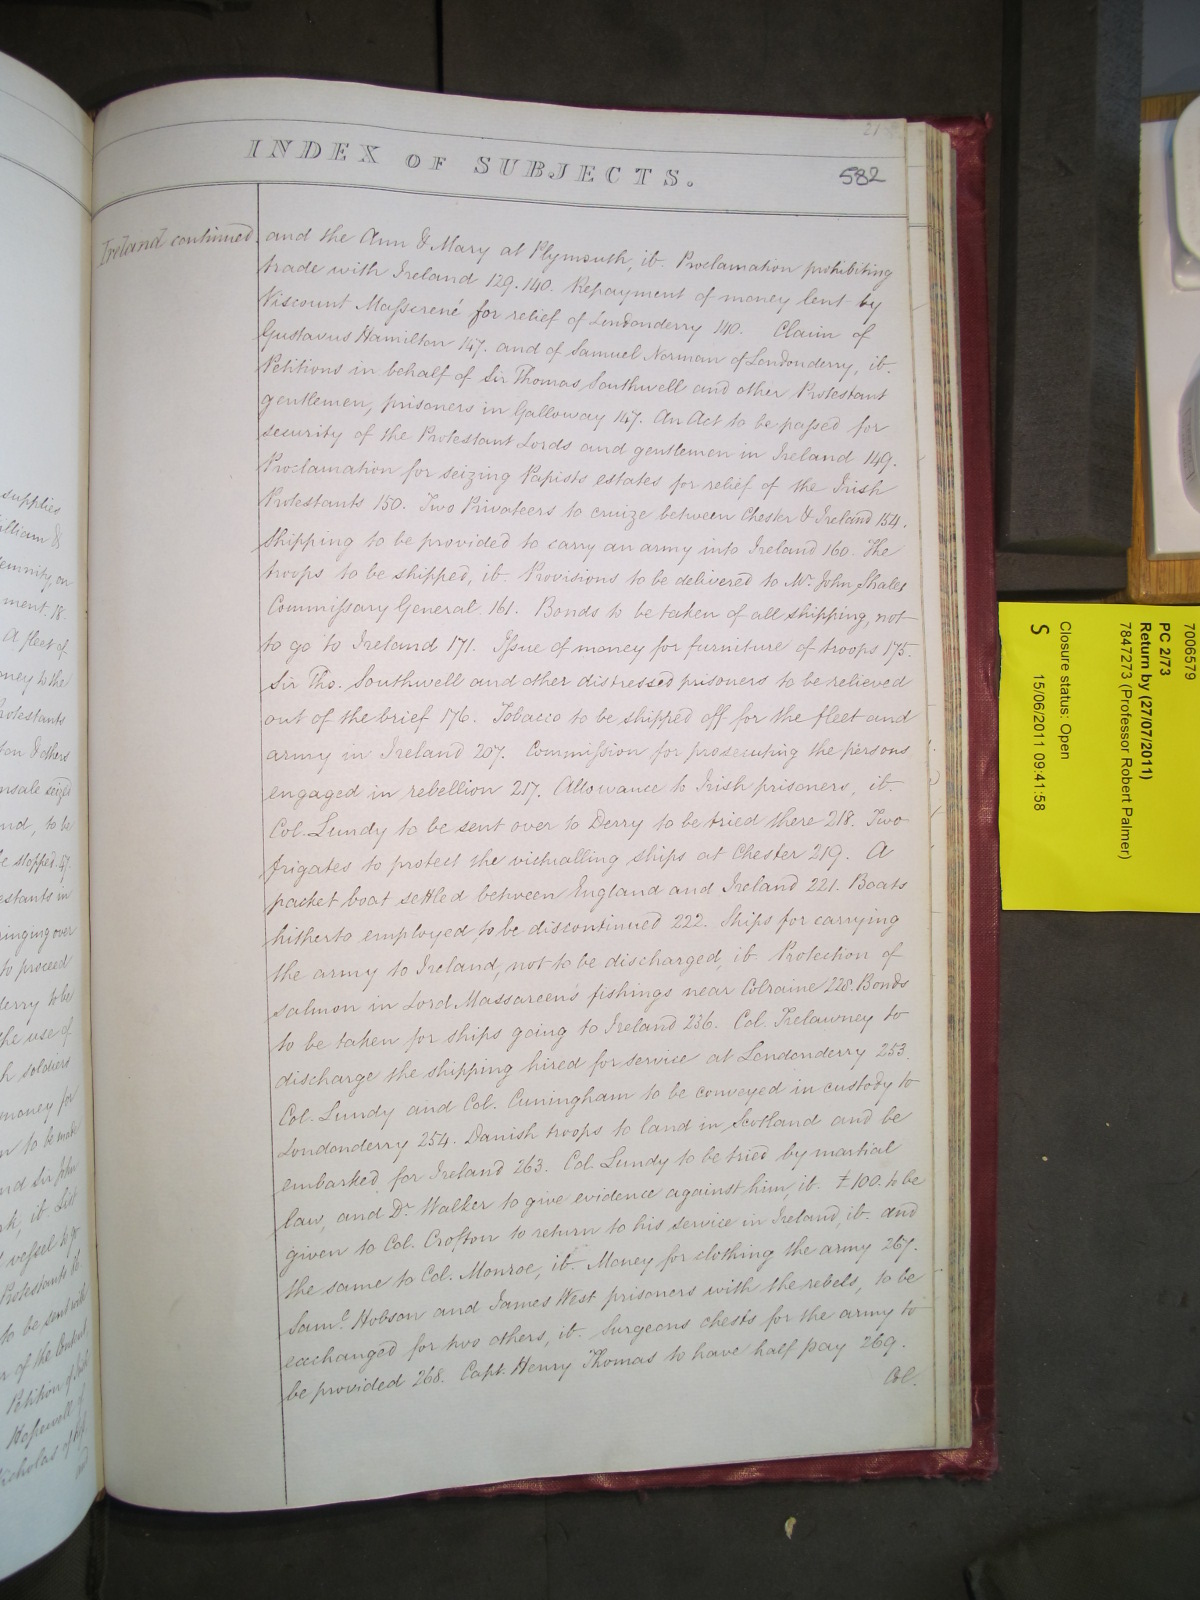 supplies
illiam &
emnity, on
ment. 18.
A fleet of
oney to the
Protestants
on & others
nsale seized
nd, to be
be stopped 47.
estants in
ringing over
to proceed
derry to be
the use of
h soldiers
money for
n to be made
nd Sir John
rk, it. List
vessel to go
Protestants ib.
to be sent with
n of the
Petition of
Hopewell of
Nicholas of
and
21
INDEX OF SUBJECTS.
582
Ireland continued.
and the Ann & Mary at Plymouth, ib. Proclamation prohibiting
trade with Ireland 129. 140. Repayment of money lent by
Viscount Masserené for relief of Londonderry 140. Claim of
Gustavus Hamilton 147. and of Samuel Norman of Londonderry, ib.
Petitions in behalf of Sir Thomas Southwell and other Protestant
gentlemen, prisoners in Galloway 147. An Act to be passed for
security of the Protestant Lords and gentlemen in Ireland 149.
Proclamation for seizing Papists estates for relief of the Irish
Protestants 150. Two Privateers to cruize between Chester & Ireland 154.
Shipping to be provided to carry an army into Ireland 160. The
troops to be shipped, ib. Provisions to be delivered to Mr. John Shales
Commissary General 161. Bonds to be taken of all shipping, not
to go to Ireland 171. Issue of money for furniture of troops 175.
Sir Tho. Southwell and other distressed prisoners to be relieved
out of the brief 176. Tobacco to be shipped off for the fleet and
army in Ireland 207. Commission for prosecuting the persons
engaged in rebellion 217. Allowance to Irish prisoners, ib.
Col. Lundy to be sent over to Derry to be tried there 218. Two
frigates to protect the victualling ships at Chester 219. A
packet boat settled between England and Ireland 221. Boats
hitherto employed, to be discontinued 222. Ships for carrying
the army to Ireland, not to be discharged, ib. Protection of
salmon in Lord Massareen's fishings near Colraine 228. Bonds
to be taken for ships going to Ireland 236. Col. Trelawney to
discharge the shipping hired for service at Londonderry 253.
Col. Lundy and Col. Cuningham to be conveyed in custody to
Londonderry 254. Danish troops to land in Scotland and be
embarked for Ireland 263. Col. Lundy to be tried by martial
law, and Dr. Walker to give evidence against him, ib. £100. to be
given to Col. Crofton to return to his service in Ireland, ib. and
the same to Col. Monroe, ib. Money for clothing the army 267.
Saml. Hobson and James West prisoners with the rebels, to be
exchanged for two others, ib. Surgeons chests for the army to
be provided 268. Capt. Henry Thomas to have half pay 269.
Col.
7006579
PC 2/73
Return by (27/07/2011)
7847273 (Professor Robert Palmer)
Closure status: Open
S 15/06/2011 09:41:58